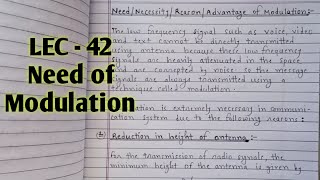 LEC - 42
Need of
Modulation
Need/Necessity/Reason/Advantage of Modulation:-
The low frequency signal such as voice, video
and text cannot be directly transmitted
using antenna because these low frequency
signals are heavily attenuated in the space
and are corrupted by noise. So the message
signals are always transmitted using a
technique called modulation.
is extremely necessary in communi-
cation system due to the following reasons:
Reduction in height of antenna:-
For the transmission of radio signals, the
minimum height of the antenna is given by